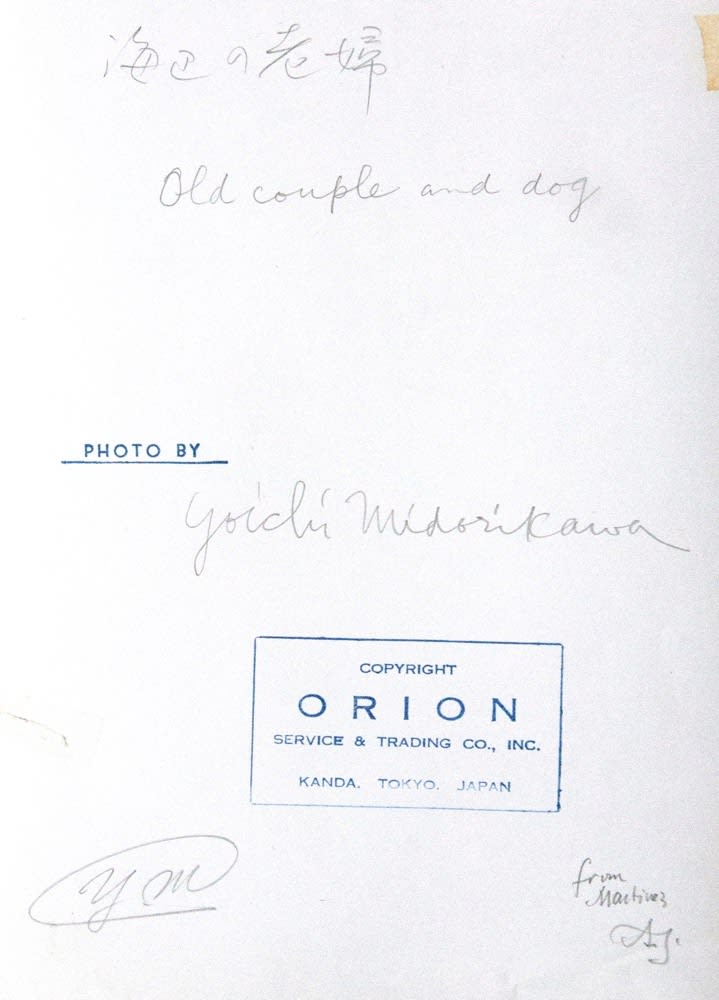 海辺の老婦
Old couple and dog
PHOTO BY
Yoichi Midorikawa
COPYRIGHT
ORION
SERVICE & TRADING CO., INC.
KANDA. TOKYO. JAPAN
y m
from
Martinez